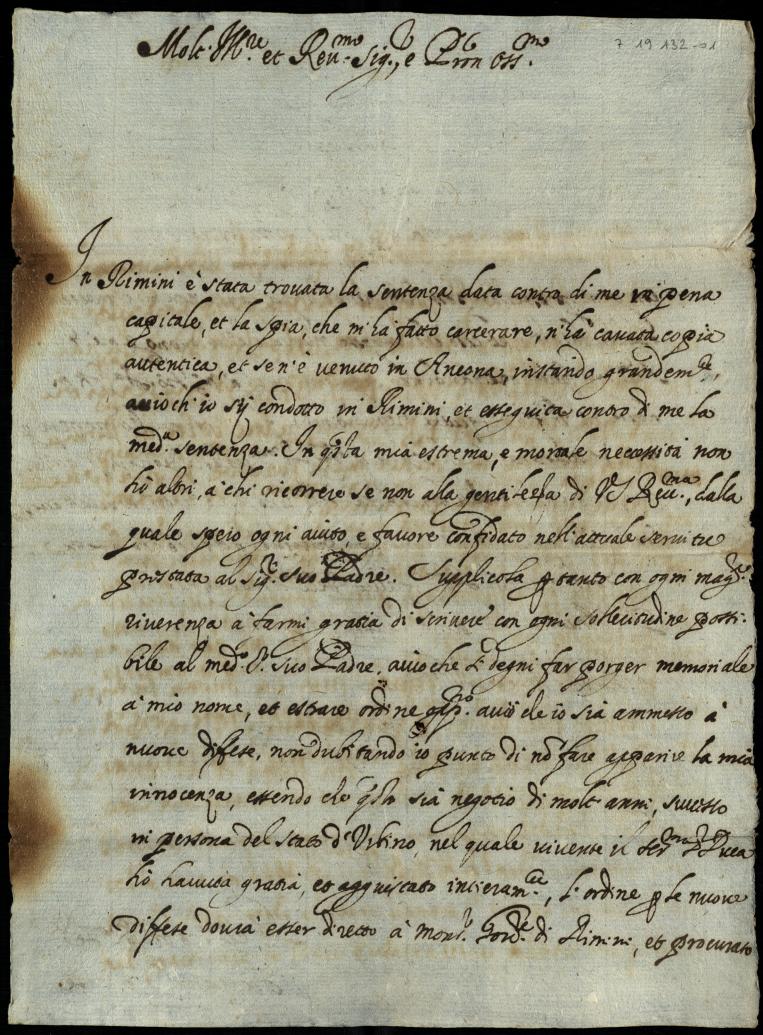 7 19 132-01
Molt Ill.re et Reu.mo Sig.r, e Pron oss.mo
In Rimini è stata trouata la sentenza data contro di me in pena
capitale, et la spia, che m'ha fatto carcerare, n'ha cauata copia
autentica, et se n'è venuto in Ancona, instando grandem.te,
acciochi io sij condotto in Rimini, et esseguita contro di me la
med.a sentenza. In q̃sta mia estrema, e mortale necessità non
hò altri, à chi ricorrere se non alla gentilezza di VS Reu.ma, dalla
quale spero ogni aiuto, e fauore confidato nell'attuale seruitù
prestata al Sig.r suo Padre. Supplicola ꝑ tanto con ogni mag.r
riuerenza à farmi gratia di scriuere con ogni sollecitudine possi-
bile al med.o S.r suo Padre, acciò che si degni far porger memoriale
à mio nome, et estrare ordine acciò che io sia ammesso à
nuoue diffese, non dubitando io punto di nõ fare apparire la mia
innocenza, essendo che q̃sto sia negotio di molt'anni, successo
in persona del stato d'Vrbino, nel quale viuente il Ser.mo S.r Duca
hò hauuta gratia, et acquistato intieram.te, l'ordine ꝑ le nuoue
diffese dourà esser diretto à Mons.r Gou.re di Rimini, et procurato